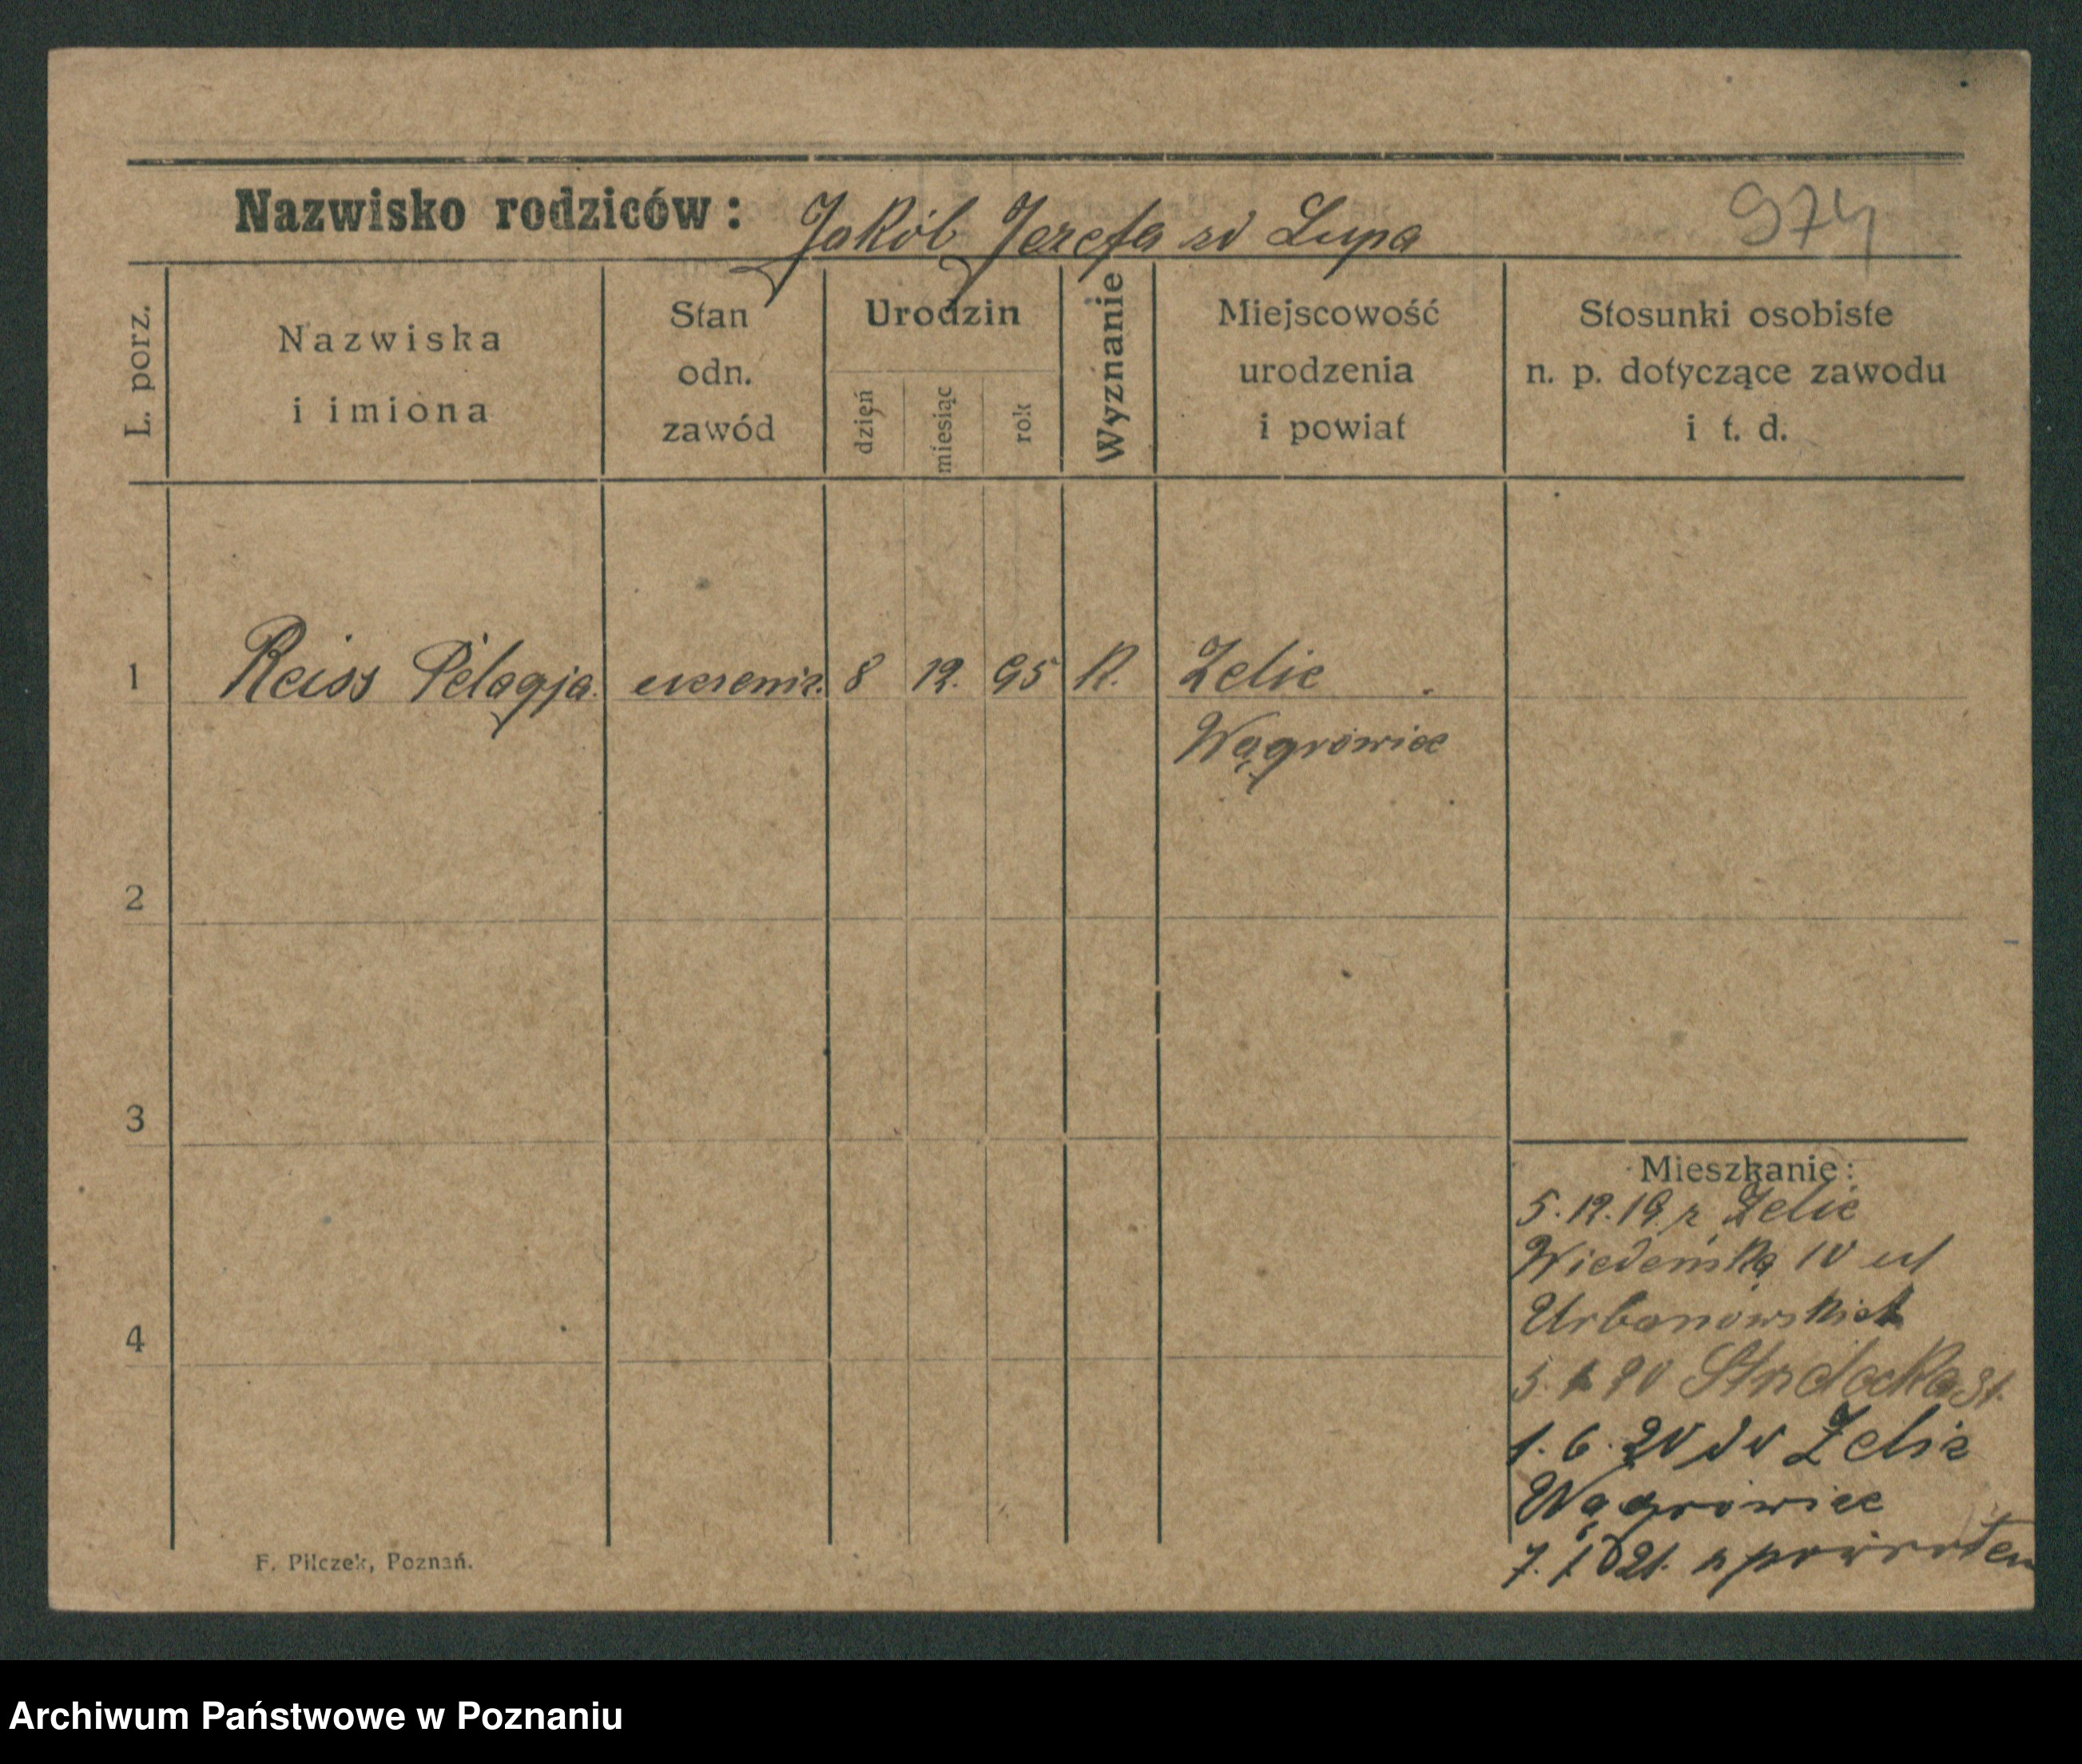 Nazwisko rodziców: Jakób Jozefa zd Lupa 974
L. porz.
Nazwiska i imiona
Stan odn. zawód
Urodzin
dzień
miesiąc
rok
Wyznanie
Miejscowość urodzenia i powiat
Stosunki osobiste n. p. dotyczące zawodu i t. d.
1 Reiss Pelagja. uczenic. 8 12. 95 K. Zelic
Wągrowiec
2
3
4
Mieszkanie:
5.12.19. z Zelic
Wiedeńska 10 ul
Urbanowskich
5. 20
1. 6. 20 do Zelic
Wągrowiec
7. 1. 21. z powrotem
F. Pilczek, Poznań.
Archiwum Państwowe w Poznaniu